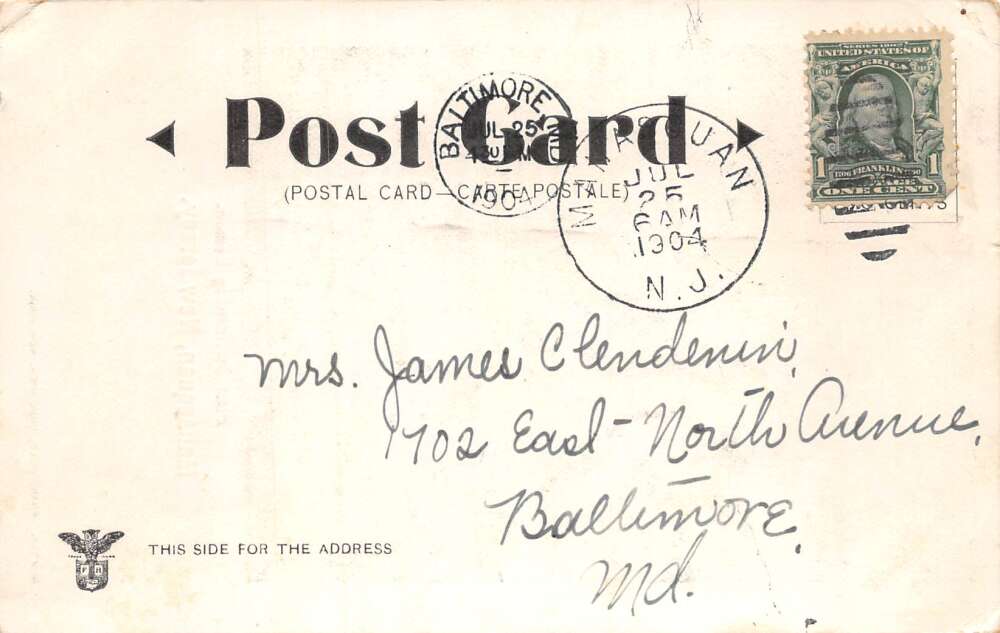 Post Card
(POSTAL CARD—CARTE POSTALE)
BALTIMORE, MD.
JUL 25
1904
MANASQUAN
JUL
25
6 AM
1904
N.J.
SERIES 1902
UNITED STATES OF
AMERICA
1706 FRANKLIN 1790
1 1
ONE CENT
Mrs. James Clendenin,
1702 East North Avenue,
Baltimore,
Md.
F H
THIS SIDE FOR THE ADDRESS